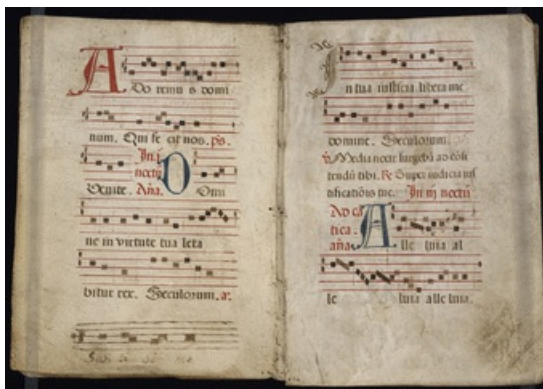 Ado remus domi
num. Qui fe cit nos. ps.
In j
noctū
Venite. Aña. Domi
ne in virtute tua leta
bitur rex. Seculorum. a.
In tua iusticia libera me
domine. Seculorum.
v. Media nocte surgebā ad cōfi
tendū tibi. Re Super iudicia ius
tificatiōis tue. In iij noctū
Ad cā
tica.
aña. Alle luia al
le luia alle luia.